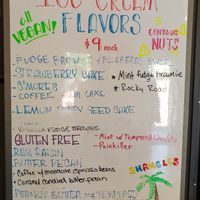 ICE CREAM
FLAVORS
all VEGAN!
$9 each
CONTAINS NUTS
- FUDGE BROWNIE
- STRAWBERRY CAKE
* Mint fudge brownie
- S'MORES
* Rocky Road
- COFFEE CAKE
- LEMON POPPY SEED CAKE
- VANILLA FUDGE BROWNIE
GLUTEN FREE
- Mint w/ Tempered Chocolate
- RUM RAISIN
- Painkiller
- BUTTER PECAN
- Coffee w/ chocolate espresso beans
- Caramel candied butter pecan
SHAMELESS
- PEANUT BUTTER w/ TEMPERED